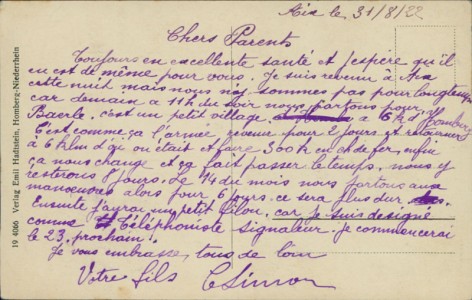 Aix le 31/8/22
Chers Parents
Toujours en excellente santé et j'espère qu'il
en est de même pour vous. Je suis revenu à Aix
cette nuit mais nous ny sommes pas pour longtemps
car demain a 11h du soir nous partons pour
Baerle. c'est un petit village a 6 h d'Homberg
C'est comme ça l'armée, revenir pour 2 jours et retourner
à 6 klm d'où on était et faire 300 k en ch de fer, enfin
ça nous change et ça fait passer le temps. nous y
resterons 8 jours. Le 14 du mois nous partons aux
manoeuvres alors pour 6 jours. ce sera plus dur
Ensuite j'aurai un petit filon, car je suis designé
comme Téléphoniste signaleur. je commencerai
le 23. prochain!.
Je vous embrasse tous de loin
Votre fils C Simon
19 4060 Verlag Emil Hadtstein, Homberg-Niederrhein